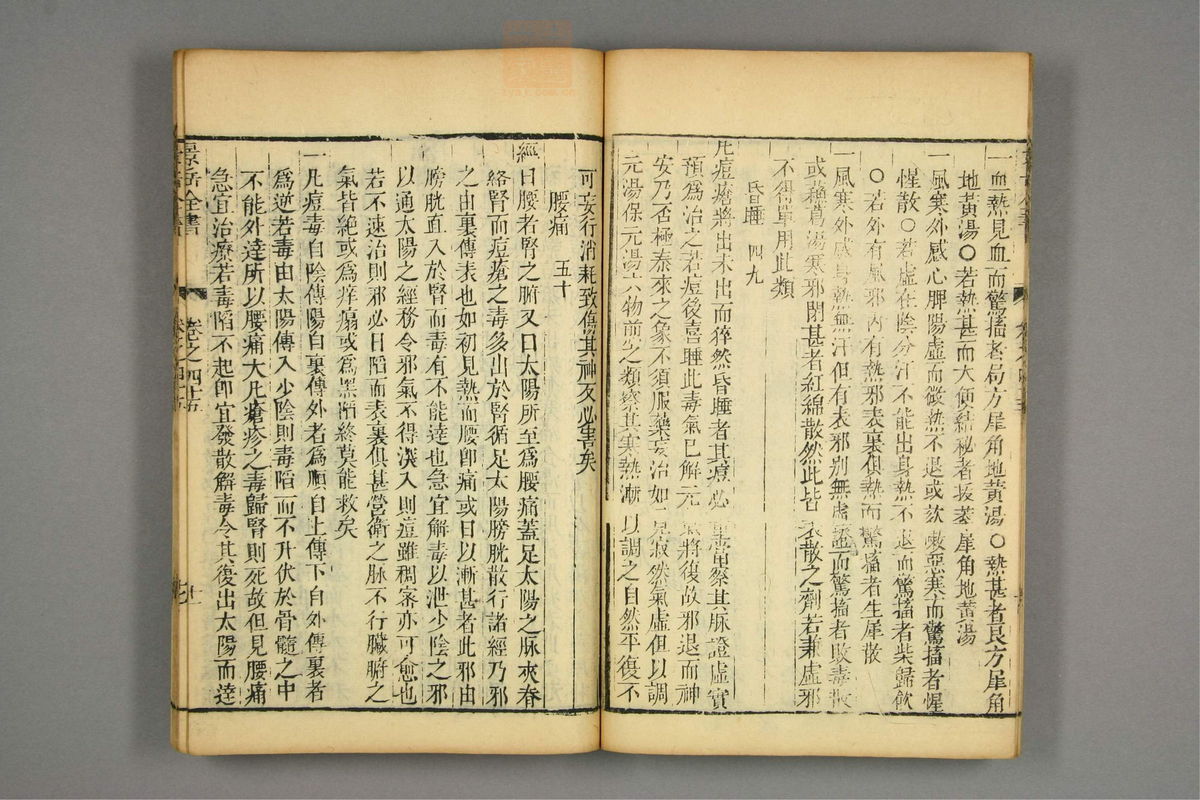 一血熱見血而驚搐者局方犀角地黃湯○熱甚者良方犀角
地黃湯○若熱甚而大便結秘者拔萃犀角地黃湯
一風寒外感心脾陽虛而微熱不退或欬嗽惡寒而驚搐者惺
惺散○若虛在陰分汗不能出身熱不退而驚搐者柴歸飲
○若外有風邪內有熱邪表裏俱熱而驚搐者生犀散
一風寒外感身熱無汗但有表邪別無虛證而驚搐者敗毒散
或蘇葛湯寒邪閉甚者紅綿散然此皆表散之劑若兼虛邪
不得單用此類
昏睡 四九
凡痘瘡將出未出而猝然昏睡者其痘必重當察其脉證虛實
預為治之若痘後喜睡此毒氣已解元氣將復故邪退而神
安乃否極泰來之象不須服藥妄治如見寂然氣虛但以調
元湯保元湯六物煎之類察其寒熱漸以調之自然平復不
可妄行消耗致傷其神反必害矣
腰痛 五十
經曰腰者腎之腑又曰太陽所至為腰痛蓋足太陽之脉夾脊
絡腎而痘瘡之毒多出於腎循足太陽膀胱散行諸經乃邪
之由裏傳表也如初見熱而腰即痛或日以漸甚者此邪由
膀胱直入於腎而毒有不能達也急宜解毒以泄少陰之邪
以通太陽之經務令邪氣不得深入則痘雖稠密亦可愈也
若不速治則邪必日陷而表裏俱甚營衛之脉不行臟腑之
氣皆絕或為痒瘍或為黑陷終莫能救矣
一凡痘毒自陰傳陽自裏傳外者為順自上傳下自外傳裏者
為逆若毒由太陽傳入少陰則毒陷而不升伏於骨髓之中
不能外達所以腰痛大凡瘡疹之毒歸腎則死故但見腰痛
急宜治療若毒陷不起即宜發散解毒令其復出太陽而達
景岳全書 卷之四十五